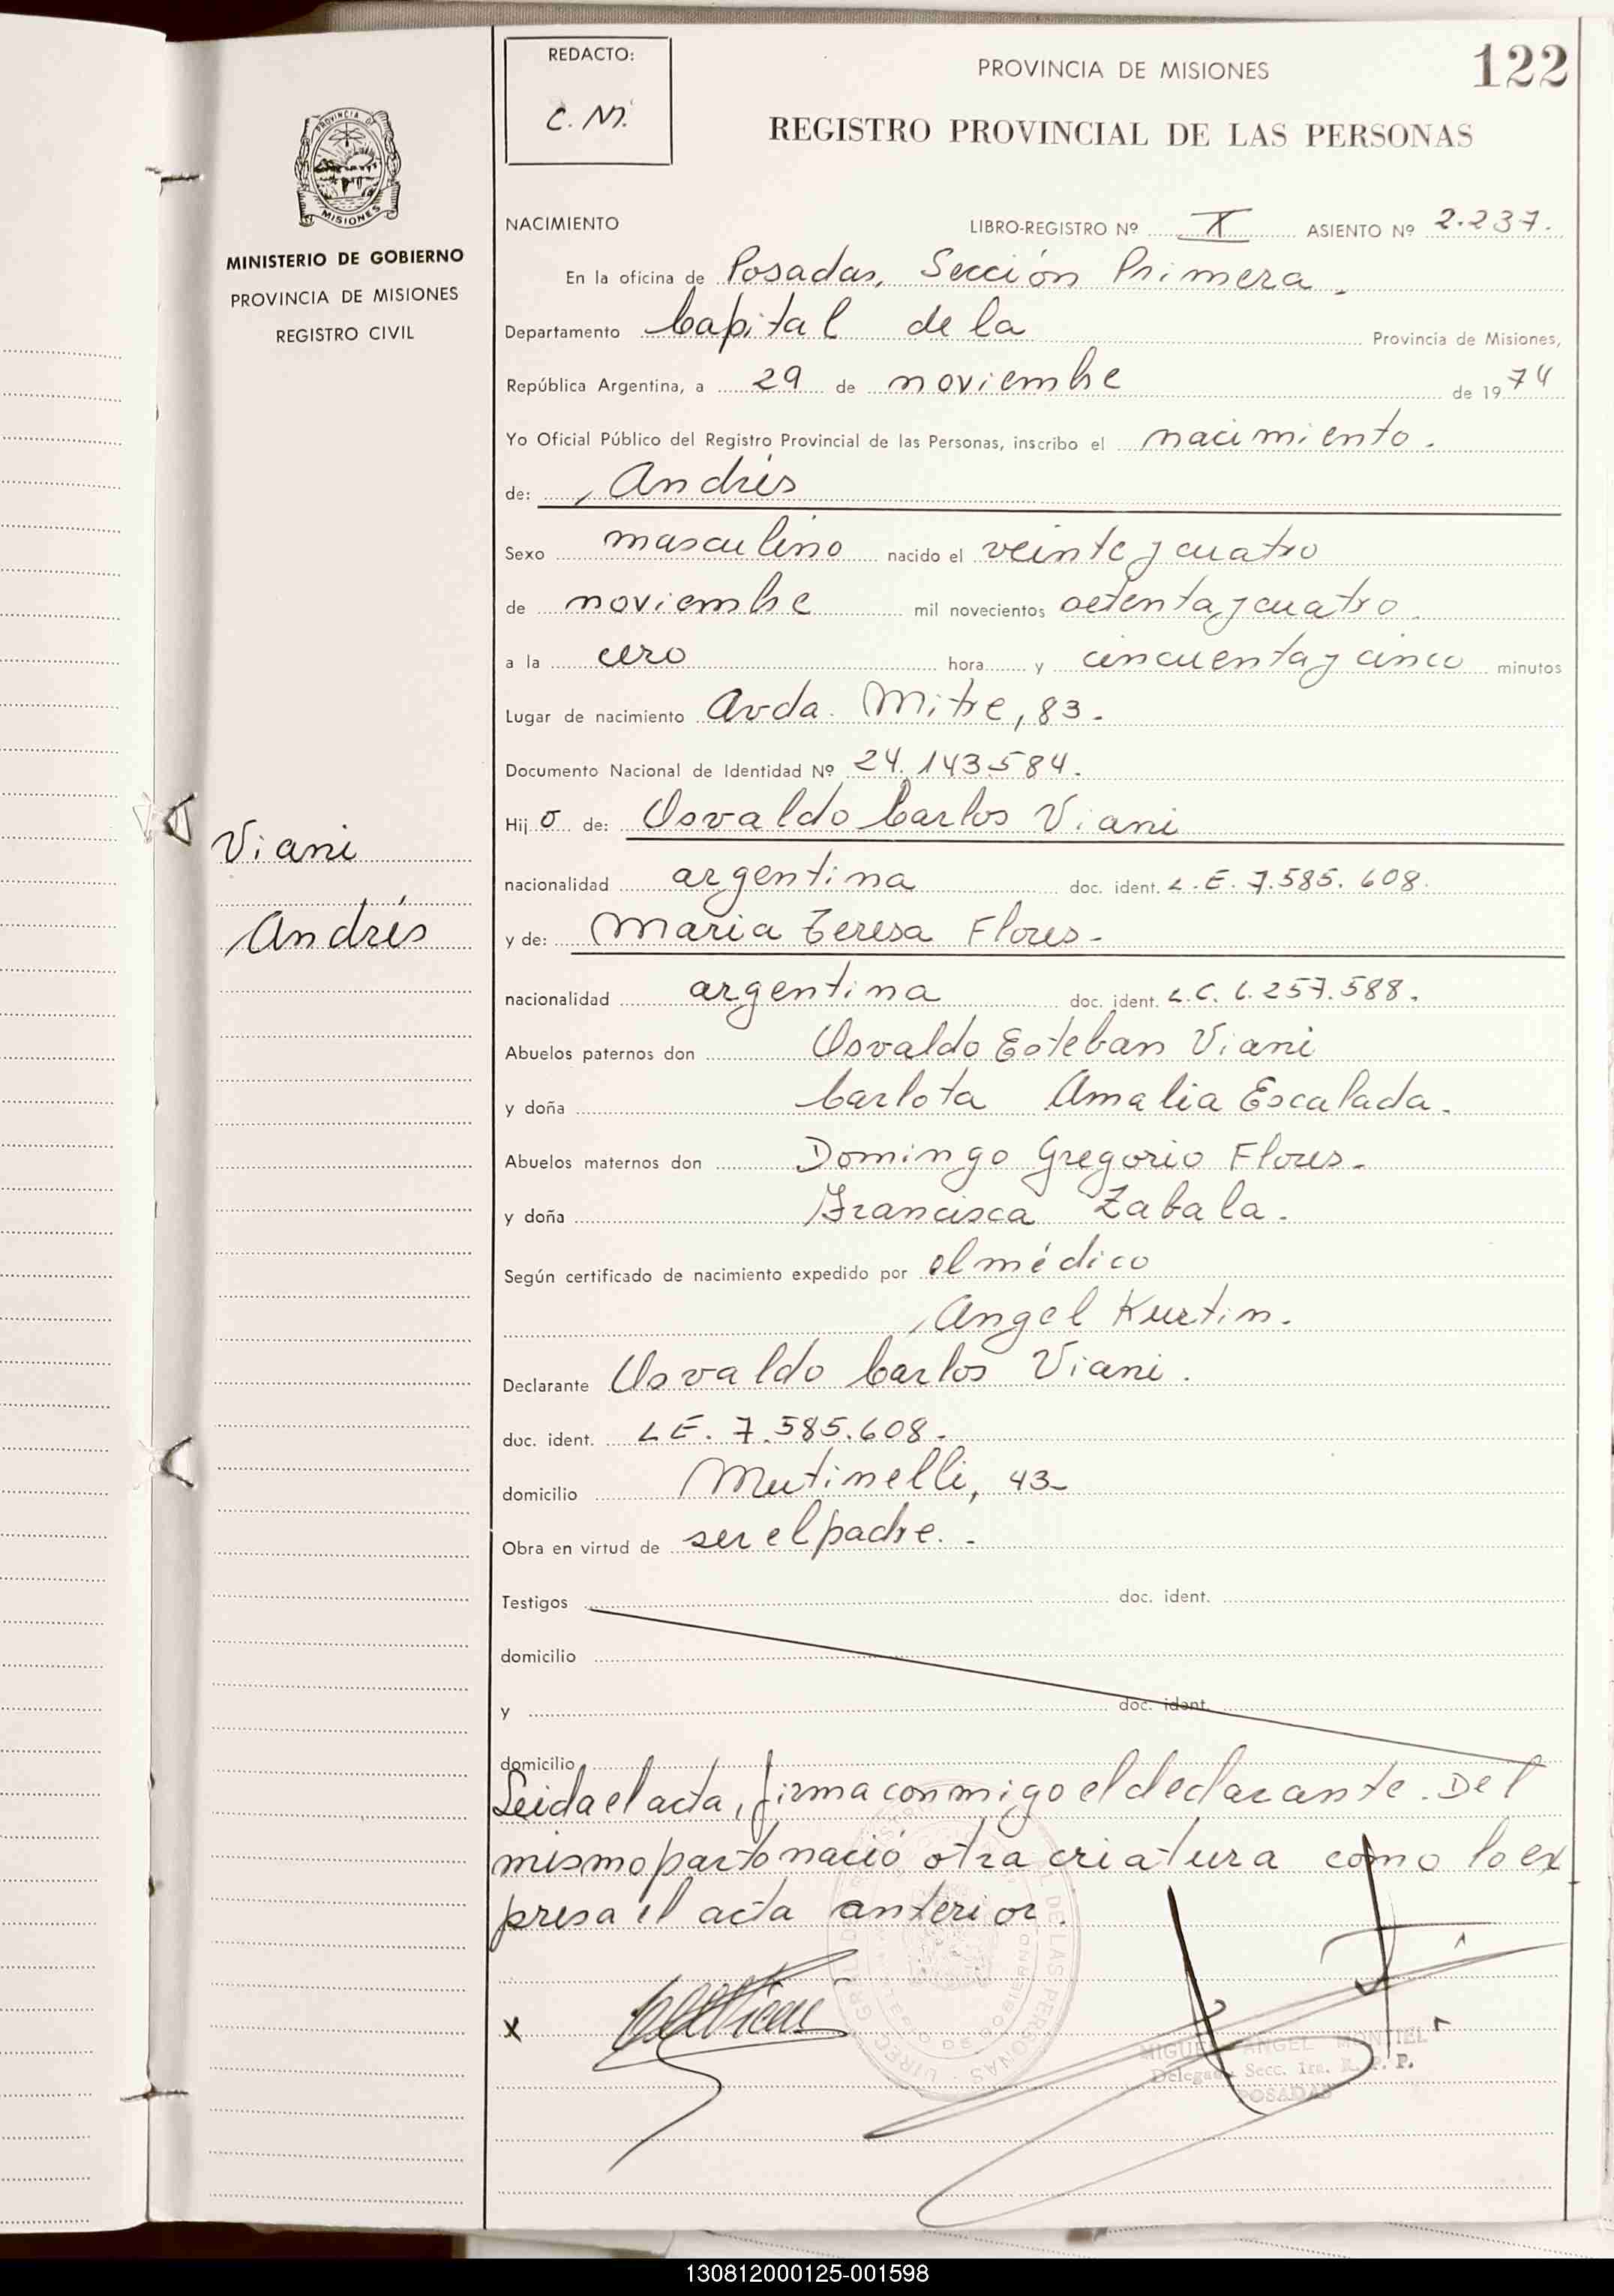 REDACTO:
C. M.
PROVINCIA DE MISIONES
122
REGISTRO PROVINCIAL DE LAS PERSONAS
PROVINCIA DE
MISIONES
MINISTERIO DE GOBIERNO
PROVINCIA DE MISIONES
REGISTRO CIVIL
NACIMIENTO LIBRO-REGISTRO Nº X ASIENTO Nº 2.237.
En la oficina de Posadas, Sección Primera.
Departamento Capital de la Provincia de Misiones,
República Argentina, a 29 de noviembre de 1974
Yo Oficial Público del Registro Provincial de las Personas, inscribo el nacimiento.
de: Andrés
Sexo masculino nacido el veinte y cuatro
de noviembre mil novecientos setenta y cuatro
a la cero hora y cincuenta y cinco minutos
Lugar de nacimiento Avda. Mitre, 83.
Documento Nacional de Identidad Nº 24.143.584.
Hijo de: Osvaldo Carlos Viani
nacionalidad argentina doc. ident. L.E. 7.585.608.
y de: Maria Teresa Flores.
nacionalidad argentina doc. ident. L.C. 6.257.588.
Abuelos paternos don Osvaldo Esteban Viani
y doña Carlota Amalia Escalada.
Abuelos maternos don Domingo Gregorio Flores.
y doña Francisca Zabala.
Según certificado de nacimiento expedido por el médico
Angel Kurtin.
Declarante Osvaldo Carlos Viani.
doc. ident. L E. 7.585.608.
domicilio Mutinelli, 43
Obra en virtud de ser el padre.
Testigos doc. ident.
domicilio
y doc. ident.
domicilio
Leida el acta, firma conmigo el declarante. Del
mismo parto nació otra criatura como lo ex
presa el acta anterior.
Viani
Andrés
x
MIGUEL ANGEL MONTIEL
Delegado Secc. 1ra. R. P. P.
POSADAS
130812000125-001598